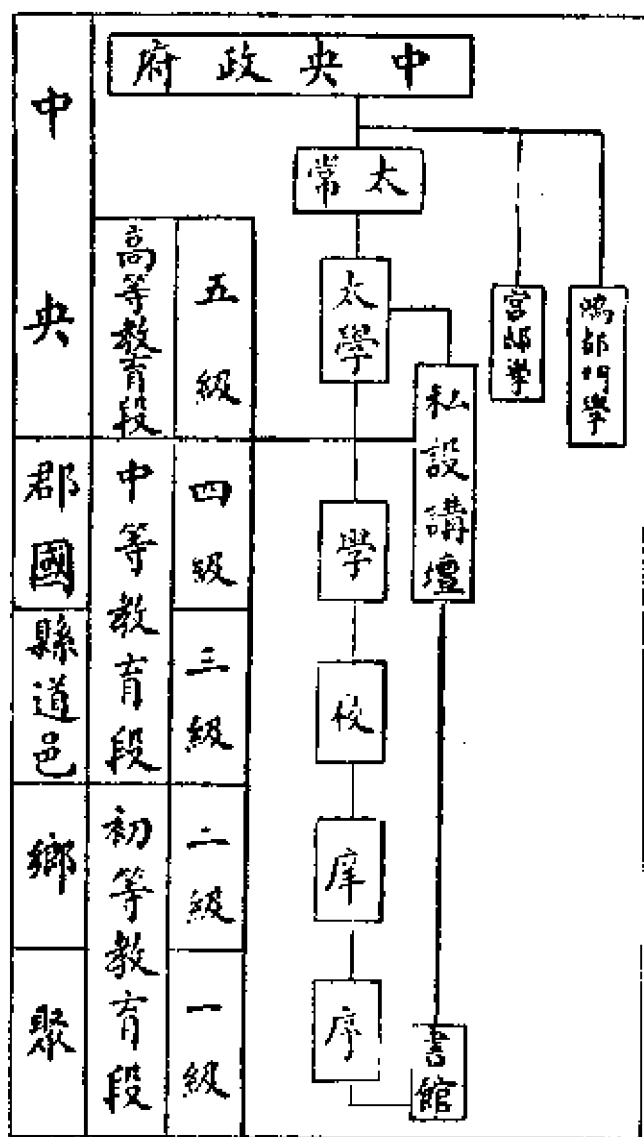 中央政府
太常
太學
宮邸學
鴻都門學
私設講壇
學
校
庠
序
書館
中央
郡國
縣道邑
鄉
聚
高等教育段
中等教育段
初等教育段
五級
四級
三級
二級
一級